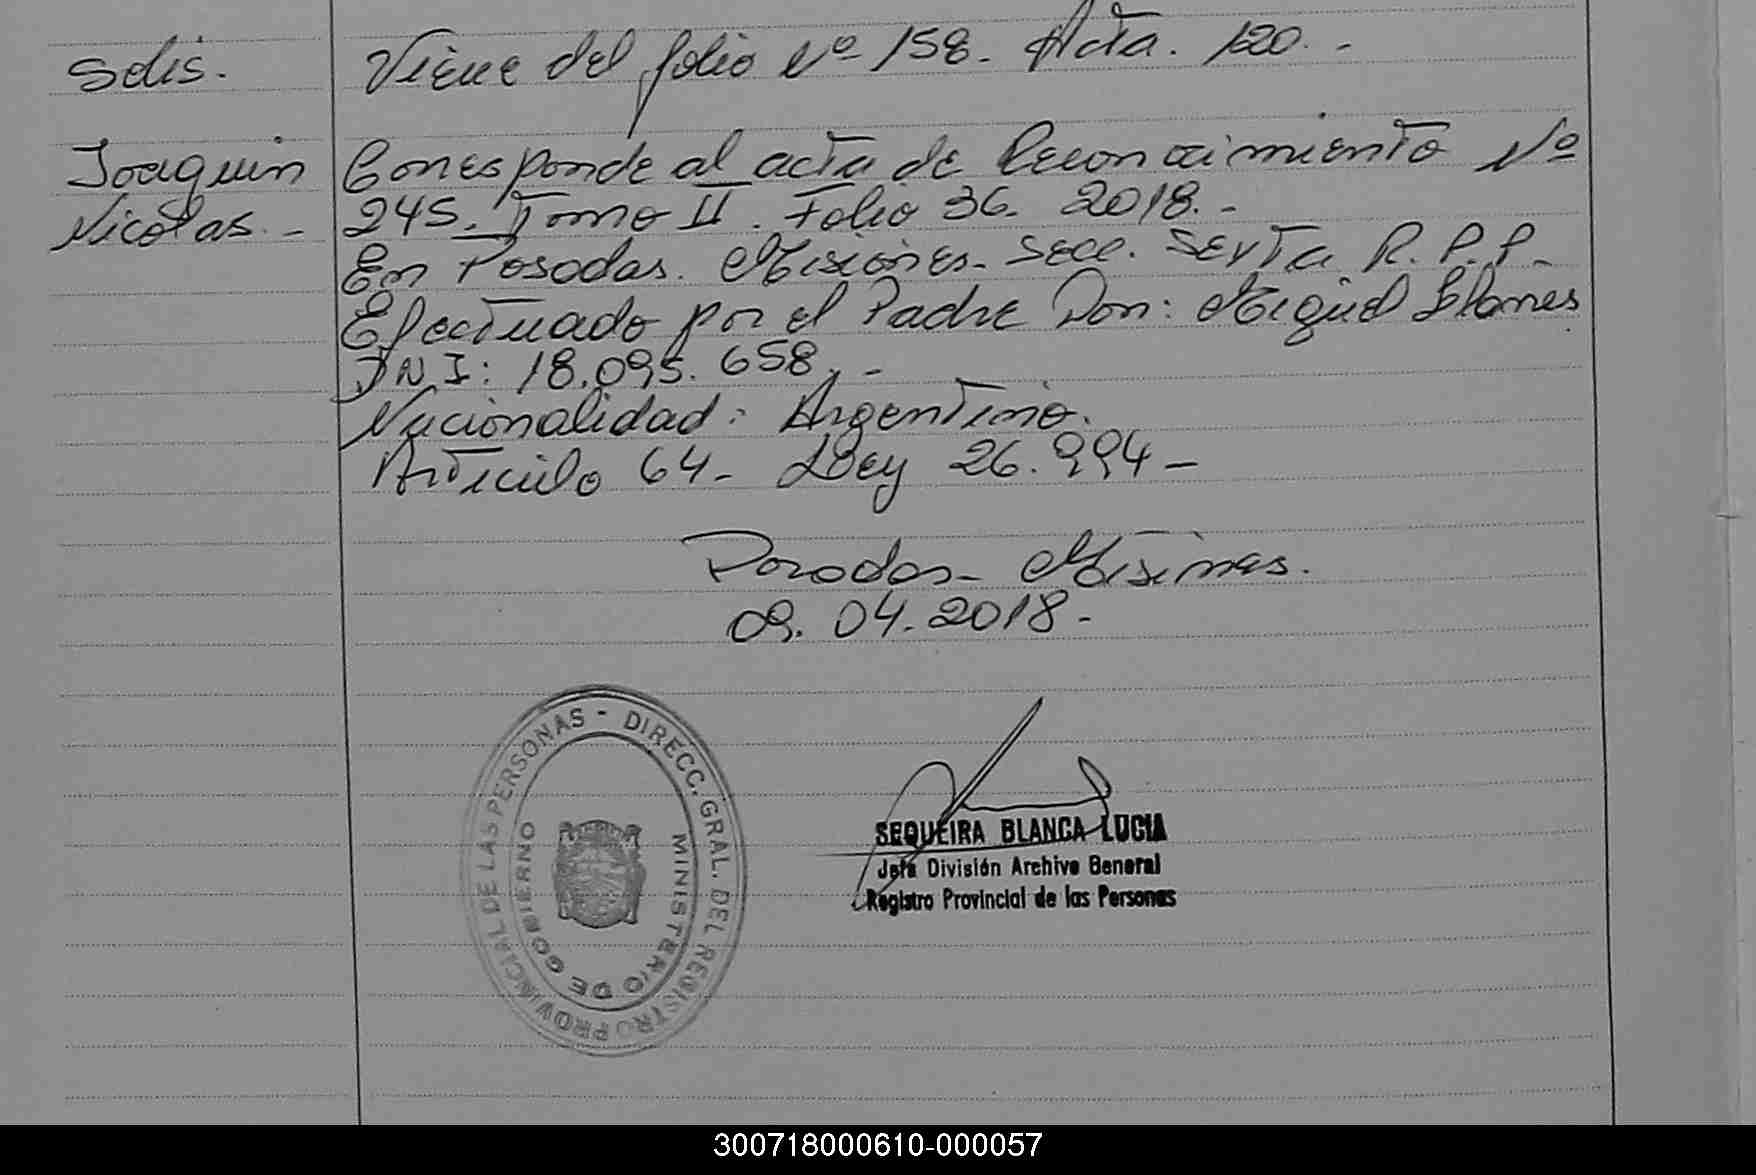 Solis. Viene del folio Nº 158. Acta. 120.-
Joaquin Corresponde al acta de Reconocimiento Nº
Nicolas.- 245. Tomo II. Folio 36. 2018.-
En Posadas. Misiones. Secc. Sexta R.P.P.
Efectuado por el Padre Don: Miguel Llames
DNI: 18.095.658.-
Nacionalidad: Argentino.
Articulo 64- Ley 26.994-
Posadas- Misiones.
09.04.2018.-
DIRECC. GRAL. DEL REGISTRO PROVINCIAL DE LAS PERSONAS -
MINISTERIO DE GOBIERNO
SEQUEIRA BLANCA LUCIA
Jefa División Archivo General
Registro Provincial de las Personas
300718000610-000057